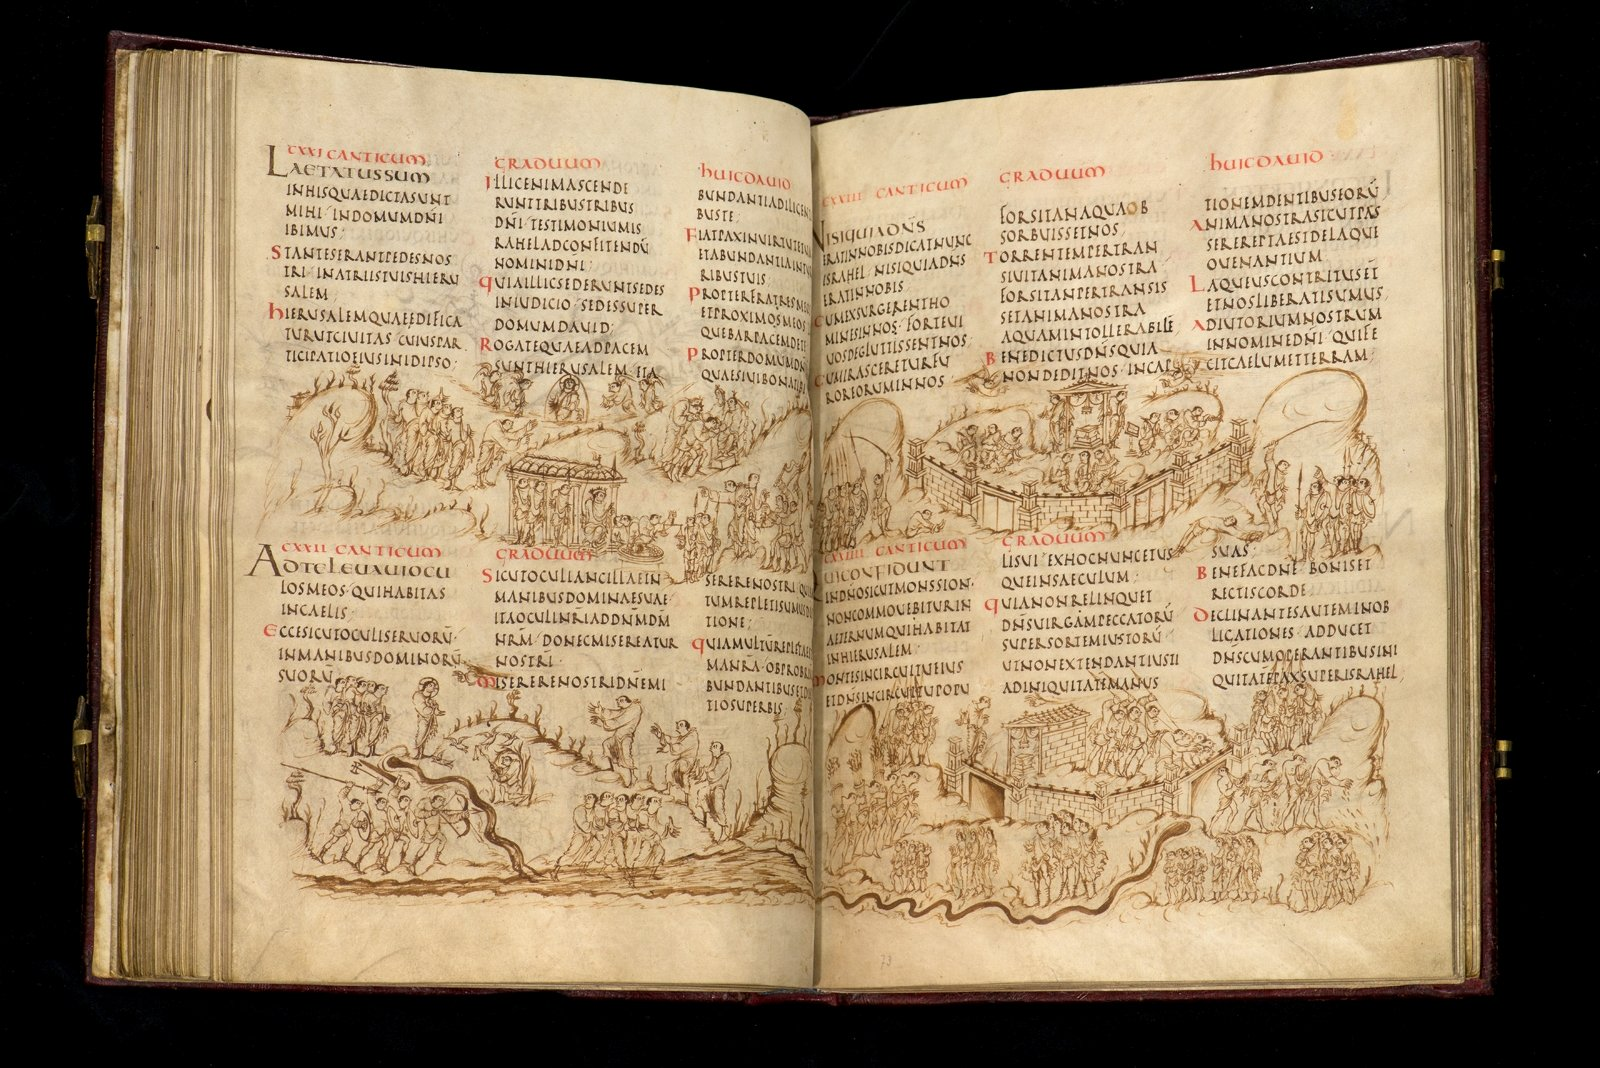 CXXI CANTICUM GRADUUM HUIC DAVID
LAETATUS SUM
IN HIS QUAE DICTA SUNT
MIHI IN DOMUM DNI
IBIMUS;
STANTES ERANT PEDES NOS
TRI IN ATRIIS TUIS HIERU
SALEM;
HIERUSALEM QUAE EDIFICA
TUR UT CIVITAS CUIUS PAR
TICIPATIO EIUS IN IDIPSO;
ILLIC ENIM ASCENDE
RUNT TRIBUS TRIBUS
DNI TESTIMONIUM IS
RAHEL AD CONFITENDU
NOMINI DNI;
QUIA ILLIC SEDERUNT SEDES
IN IUDICIO SEDES SUPER
DOMUM DAVID;
ROGATE QUAE AD PACEM
SUNT HIERUSALEM ETA
BUNDANTIA DILIGEN
BUS TE;
FIAT PAX IN VIRTUTE TUA
ET ABUNDANTIA IN TUR
RIBUS TUIS;
PROPTER FRATRES MEOS
ET PROXIMOS MEOS
LOQUEBAR PACEM DE TE
PROPTER DOMUM DNI
QUAESIVI BONA TIBI
CXXII CANTICUM GRADUUM
AD TE LEVAVI OCU
LOS MEOS QUI HABITAS
IN CAELIS;
ECCE SICUT OCULI SERVORU
IN MANIBUS DOMINORU
SUORU
SICUT OCULI ANCILLAE IN
MANIBUS DOMINAE SUAE
ITA OCULI NRI AD DNM DM
NRM DONEC MISEREATUR
NOSTRI
MISERERE NOSTRI DNE MI
SERERE NOSTRI QUIA
TUM REPLETI SUMUS
TIONE;
QUIA MULTU REPLETA
MA NRA OBPROBR
BUNDANTIBUS
TIO SUPERBIS;
CXXIII CANTICUM GRADUUM HUIC DAVID
NISI QUIA DNS
ERAT IN NOBIS DICAT NUNC
ISRAHEL NISI QUIA DNS
ERAT IN NOBIS
CUM EXSURGERENT HO
MINES IN NOS FORTE VI
VOS DEGLUTISSENT NOS;
CUM IRASCERETUR FU
ROR EORUM IN NOS
FORSITAN AQUA OB
SORBUISSET NOS;
TORRENTEM PERTRAN
SIVIT ANIMA NOSTRA
FORSITAN PERTRANSIS
SET ANIMA NOSTRA
AQUAM INTOLLERABILE
BENEDICTUS DNS QUIA
NON DEDIT NOS IN CAP
TIONEM DENTIBUS EORU
ANIMA NOSTRA SICUT PAS
SER EREPTA EST DE LAQUE
O VENANTIUM
LAQUEUS CONTRITUS EST
ET NOS LIBERATI SUMUS;
ADIUTORIUM NOSTRUM
IN NOMINE DNI QUI FE
CIT CAELUM ET TERRAM;
CXXIIII CANTICUM GRADUUM
QUI CONFIDUNT
IN DNO SICUT MONS SION
NON COMMOVEBITUR IN
AETERNUM QUI HABITAT
IN HIERUSALEM
MONTES IN CIRCUITU EIUS
ET DNS IN CIRCUITU POPU
LI SUI EX HOC NUNC ET US
QUE IN SAECULUM;
QUIA NON RELINQUET
DNS VIRGAM PECCATORU
SUPER SORTEM IUSTORU
UT NON EXTENDANT IUSTI
AD INIQUITATEM MANUS
SUAS;
BENEFAC DNE BONIS ET
RECTIS CORDE
DECLINANTES AUTEM IN OB
LIGATIONES ADDUCET
DNS CUM OPERANTIBUS INI
QUITATE PAX SUPER ISRAHEL;
73